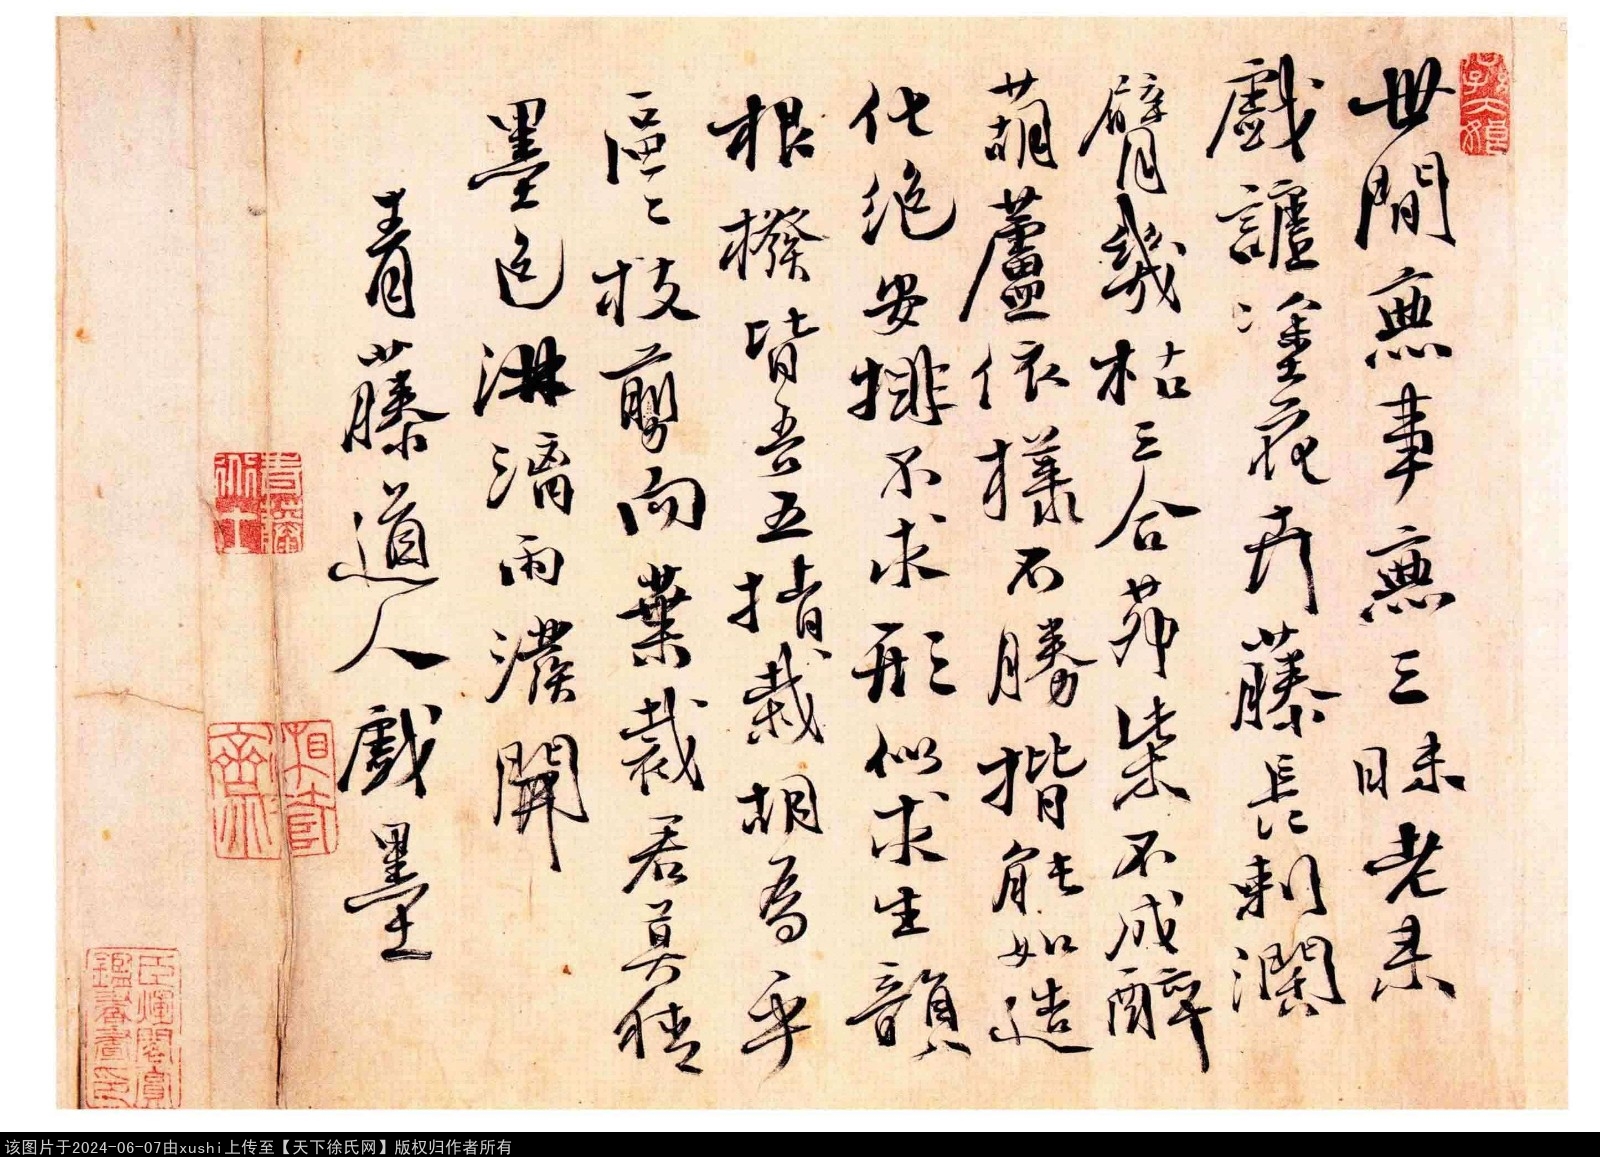 世間無事無三昧老來
戲謔塗花卉藤長刺濶
臂幾枯三合茆柴不成醉
葫蘆依樣不勝揩能如造
化絕安排不求形似求生韻
根撥皆吾五指栽胡為乎
區〻枝剪向葉裁君莫猜
墨色淋漓雨潑開
青藤道人戲墨
该图片于2024-06-07由xushi上传至【天下徐氏网】版权归作者所有